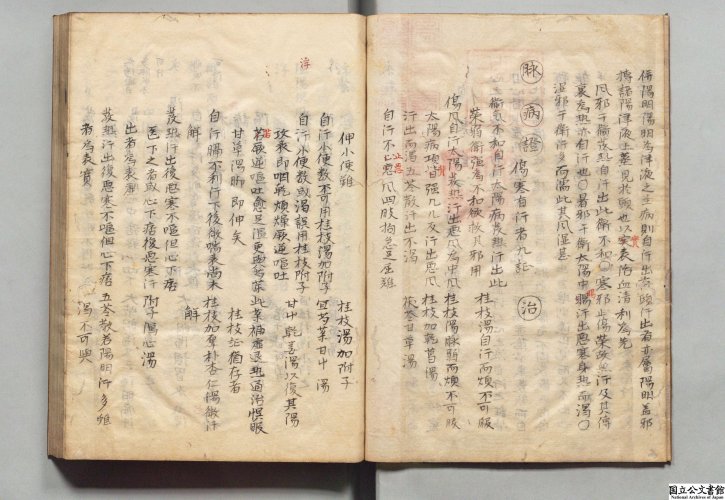 係陽明陽明為津液之主病則自汗出者頭汗出者亦屬陽明蓋邪
搏諸陽津液上蒸見於頭也以實表陷血清利為先
風邪干衛故熱自汗出此衛不和○寒邪止傷榮故無汗及其傳
裏為熱亦自汗也○暑邪干衛太陽中暍汗出惡寒身熱而渴○
濕邪干衛汗多而濡此其風濕甚
脉 病 證 傷寒自汗者九記 治
衛氣不和自汗太陽病發熱汗出此
榮弱衛強為不和欲救風邪用 桂枝湯自汗而煩不可服
傷風自汗太陽發熱汗出惡風為中風 桂枝湯脉弱而煩不可服
太陽病項背強几几反汗出惡風 桂枝加乾葛湯
汗出而渴五苓散汗出不渴 茯苓甘草湯
自汗不止惡風四肢拘急足屈難
伸小便難 桂枝湯加附子
自汗小便數不可用桂枝湯加附子宜芍藥甘中湯
自汗小便數或渴誤用桂枝附子
攻表即咽乾煩燥厥逆嘔吐 甘中乾姜湯以復其陽
若厥逆嘔吐愈足溫更與芍藥此藥補虛退熱通治悞服
甘草湯脚即伸矣 桂枝症猶存者
自汗腸不利行下後微喘表尚未 桂枝加厚朴杏仁湯微汗
解 解
發熱汗出後惡寒不嘔但心下痞
医下之者取心下痞後惡寒汗 附子瀉心湯
出者為表虛
發熱汗出後惡寒不嘔但心下痞 五苓散若陽明汗多雖
者為表實 渴不可與
国立公文書館
National Archives of Japan